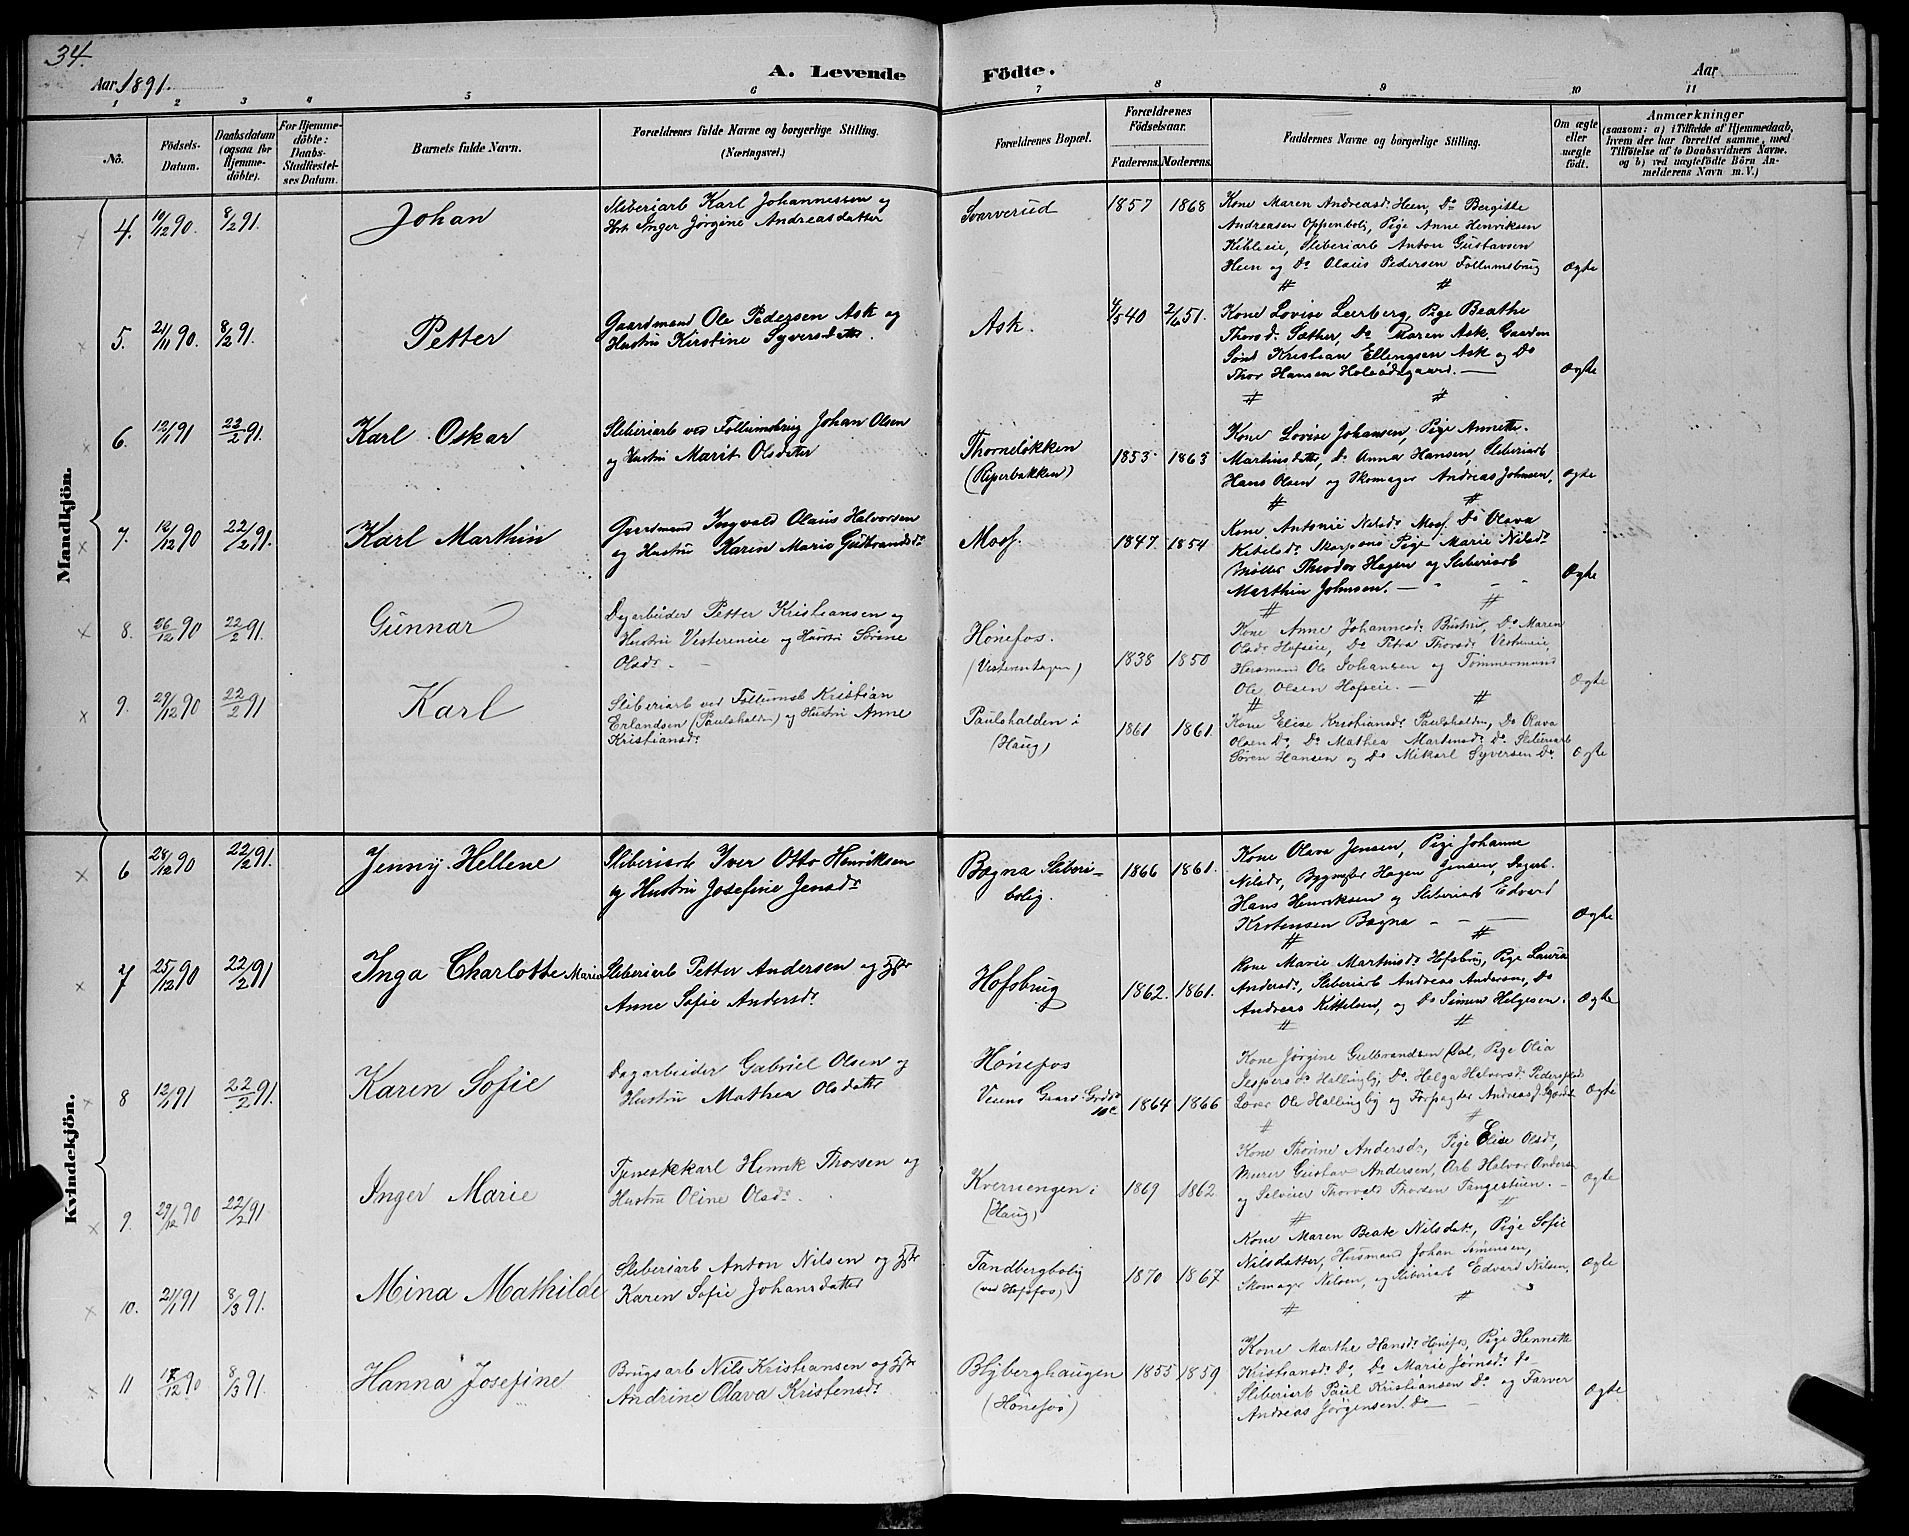 34.
Aar 1891.
A. Levende Födte.
Aar
1 2 3 4 5 6 7 8 9 10 11
No.
Födsels-Datum.
Daabsdatum (ogsaa for Hjemme-döbte).
For Hjemme-döbte: Daabs-Stadfæstel-ses Datum.
Barnets fulde Navn.
Forældrenes fulde Navne og borgerlige Stilling. (Næringsvei.)
Forældrenes Bopæl.
Forældrenes Födselsaar.
Faderens. Moderens.
Faddernes Navne og borgerlige Stilling.
Om ægte eller uægte födt.
Anmærkninger
(saasom: a) i Tilfælde af Hjemmedaab, hvem der har forrettet samme, med Tilföielse af to Daabsvidners Navne. og b) ved uægtefödte Börn An-melderens Navn m. V.)
Mandkjön.
4. 10/12 90. 8/2 91. Johan
Sliberiarb Karl Johannessen og
Hst. Inger Jørgine Andreasdatter
Svarverud 1857 1868
Kone Maren Andreasd. Heen, Do Bergitte
Andreasen Oppenbolj, Pige Anne Henriksen
Kihleie, Sliberiarb Anton Gustavsen
Heen og Do Olaus Pedersen Follumsbrug Ægte
5. 21/11 90. 8/2 91. Petter
Gaardmand Ole Pedersen Ask og
Hustru Kirstine Syversdatter
Ask. 4/5 40 2/6 51.
Kone Lovise Leerberg, Pige Beathe
Thorsd. Sæther, Do Maren Ask, Gaardm
Sønd Kristian Ellingsen Ask og Do
Thor Hansen Hole Ødegaard. Ægte
6. 12/1 91 22/2 91. Karl Oskar
Sliberiarb ved Follumsbrug Johan Olsen
og Hustru Marit Olsdatter
Thorneløkken (Piperbakken) 1853 1863
Kone Lovise Johansen, Pige Annette
Martinsdatter, Do Anna Hansen, Sliberiarb
Hans Olsen og Skomager Andreas Johnsen. Ægte
7. 12/12 90 22/2 91. Karl Marthin
Gaardmand Ingvald Olaus Halvorsen
og Hustru Karen Marie Gulbrandsdr
Moss. 1847. 1854
Kone Antonie Nilsdr Moss, Do Olava
Kitelsdr Skarpsno Pige Marie Nilsdr
Møller Theodor Hagen og Sliberiarb
Marthin Johnsen. Ægte
8. 26/12 90 22/2 91. Gunnar
Dagarbeider Petter Kristiansen og
Hustru Vestereneie og Hustru Sørine
Olsdr
Hønefos. (Vesterentagen) 1838 1850
Kone Anne Johannesdr Bustru, Do Maren
Olsdr Hofseie, Do Petra Thorsdr Vesterneie,
Husmand Ole Johansen og Tømmermand
Ole Olsen Hofseie. Ægte
9. 29/12 90 22/2 91 Karl
Sliberiarb ved Follumsb Kristian
Erlandsen (Paulshalden) og Hustru Anne
Kristiansdr
Paulshalden i (Haug) 1861 1861.
Kone Elise Kristiansdr Paulshalden, Do Olava
Olsen Do, Do Mathea Martensdr Do Sliberiarb
Søren Hansen og Do Mikael Syversen Do. Ægte
Kvindekjön.
6 28/12 90 22/2 91. Jenny Hellene
Sliberiarb Iver Otto Henriksen
og Hustru Josefine Jensdr
Bægna Sliberi-bolig. 1866 1861.
Kone Olava Jensen, Pige Johanne
Nilsdr, Bygmester Hagen Jensen, Dagarb.
Hans Henriksen og Sliberiarb Edvard
Kristensen Bægna Ægte
7 25/12 90 22/2 91 Inga Charlotte Marie
Sliberiarb Petter Andersen og Hstr
Anne Sofie Andersdr
Hofsbrug 1862. 1861.
Kone Marie Martinsdr Hofsbrug, Pige Laura
Andersdr, Sliberiarb Andreas Andersen, Do
Andreas Kittelsen, og Do Simen Helgesen. Ægte
8 12/1 91 22/2 91. Karen Sofie
Dagarbeider Gabriel Olsen og
Hustru Mathea Olsdatter
Hønefos
Veiens Gaard 10c 1864 1866
Kone Jørgine Gulbrandsen Dal, Pige Olia
Jespersdr Hallingby, Do Helga Halvorsdr
Lærer Ole Hallingby og Forpagter Andreas Ægte
9. 29/12 90 22/2 91 Inger Marie
Tjenestekarl Henrik Thorsen og
Hustru Oline Olsdr.
Kverneengen i (Haug) 1869 1862.
Kone Thorine Andersdr, Pige Elise Olsdr,
Murer Gustav Andersen, Arb Halvor Anders
og Selveier Thorvald Thorsen Tangestuen. Ægte
10. 21/1 91 8/3 91. Mina Mathilde
Sliberiarb Anton Nilsen og Hstr
Karen Sofie Johansdatter
Tandbergbolig (ved Hofsfos) 1870 1867
Kone Maren Beate Nilsdatr, Pige Sofie
Nilsdatter, Husmand Johan Simensen,
Skomager Nilsen, og Sliberiarb Edvard Nilsen, Ægte
11 17/12 90 8/3 91. Hanna Josefine
Brugsarb Nils Kristiansen og Hstr
Andrine Olava Kristensdr
Blyberghaugen (Hønefos) 1855 1859
Kone Marthe Hansdr Hønefos, Pige Hennette
Kristiansdr Do, Do Marie Jørnsdr Do
Sliberiarb Paul Kristiansen Do og Farver
Andreas Jørgensen Do Ægte